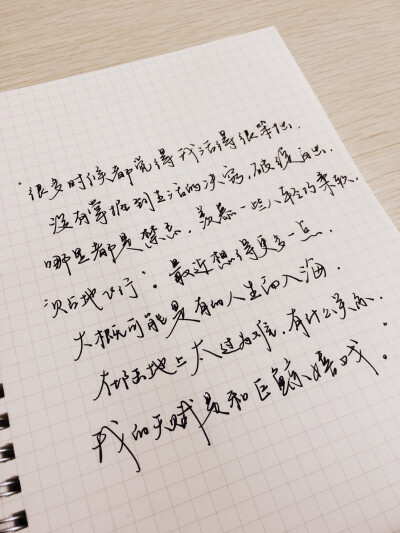 很多时候都觉得我活得很笨拙.
没有掌握到生活的决窍,破绽百出.
哪里都是禁忌.羡慕一些人轻巧柔软.
贴地飞行。最近想得更多一点.
大概可能是有的人生而入海.
在陆地上太过为难,有什么关系.
我的天赋是和巨鲸嬉戏。